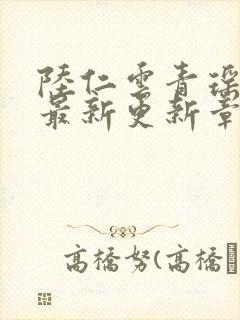 陸仁雲青瑤
最新更新章
高橋努(高橋